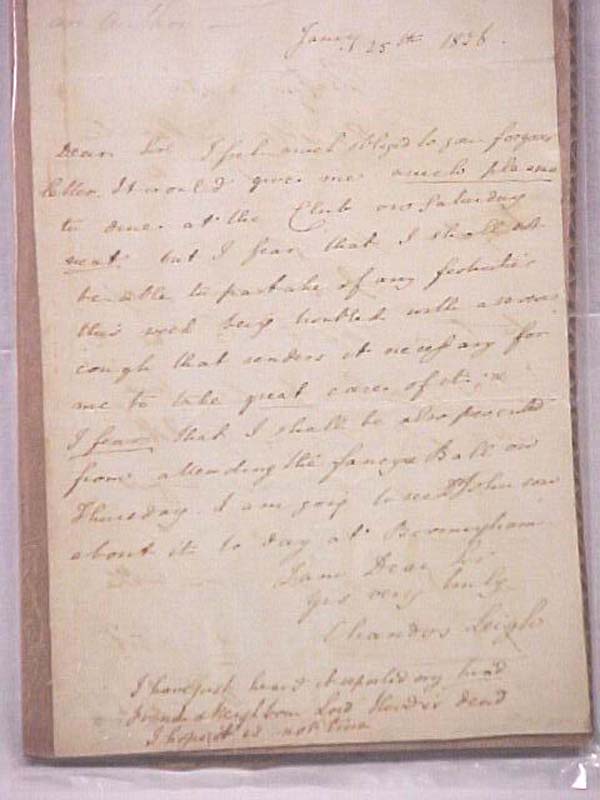 an Author
Jany 25th 1836.
Dear Sir I feel much obliged to you for your
letter. It would give me much pleasure
to dine at the Club on Saturday
next but I fear that I shall not
be able to partake of any festivities
this week being troubled with a
cough that renders it necessary for
me to take great care of it; &
I fear that I shall be also prevented
from attending the fancy Ball on
Thursday. I am going to see Dr Johnson
about it to day at Birmingham
I am Dear Sir
Yrs very truly
Chandos Leigh
I have just heard it reported my kind
friend & Neighbour Lord Hood is dead
I hope it is not true